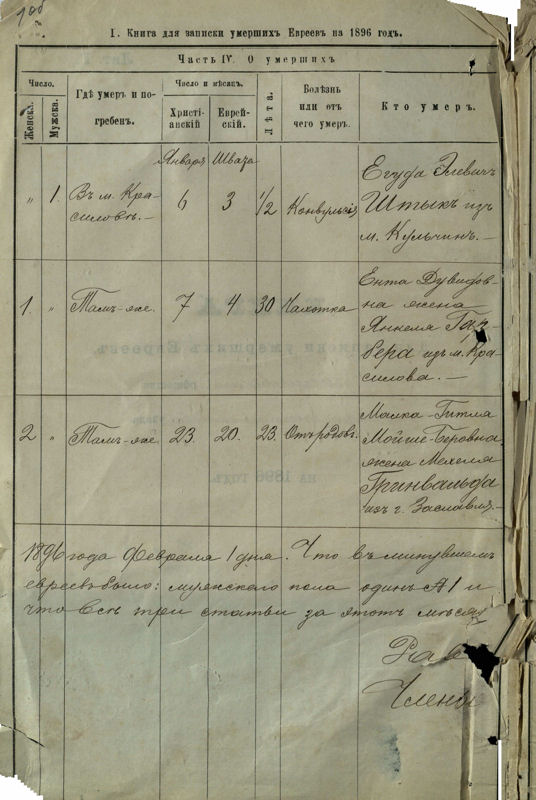 I. Книга для записки умершихъ Евреевъ на 1896 годъ.
Часть IV. О умершихъ
Число.
Женска.
Мужска.
Гдѣ умеръ и по-
гребенъ.
Число и мѣсяцъ.
Христі-
анскій
Еврей-
скій.
Лѣта.
Болѣзнь
или отъ
чего умеръ.
Кто умеръ.
Январь Швата
„ 1. Въ м. Кра-
силовѣ.— 6 3 1/2 Конвульсія
Егуда Элевичъ
Штыкъ изъ
м. Кульчинъ.—
1. „ Тамъ-же. 7 4 30 Чахотка
Ента Дувидов-
на жена
Янкеля Гар-
бера изъ м. Кра-
силова.—
2 „ Тамъ-же. 23. 20. 23. Отъ родовъ.
Малка-Гитля
Мойше-Беровна
жена Мехеля
Гринвальда
изъ г. Заславля.—
1896 года Февраля 1 дня. Что въ минувшемъ
евреевъ было: мужского пола одинъ № 1 и
что всѣ три статьи за этотъ мѣсяц
Рав
Члены